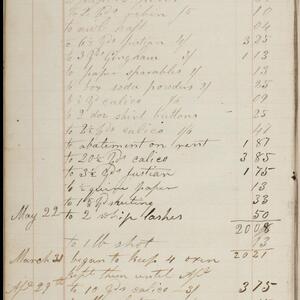 to 2 yds ribin /5 10
to awl haft 04
to 6½ yds fustian 3/ 3 25
to 3 yds Gingham 2/ 1 13
to paper sparables 2/ 13
to box soda powders 2/ 25
to ½ yd calico 1/6 09
to 2 doz shirt buttons 25
to 2½ yds calico 47
to abatement on rent 1 87
to 20½ yds calico 3 85
to 3½ yds fustian 1 75
to ½ quire paper 13
to 1½ yds 38
May 22 to 2 whip lashes 50
20 08
to 1 lb shot 13
March 31 began to keep 4 oxen 20 21
kept them until Apl
Apl 29th to 10 yds calico 3/ 3 75